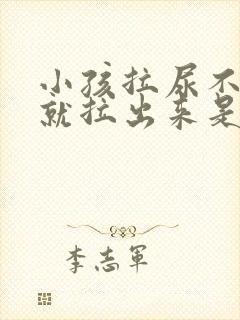 小孩拉尿不
就拉出来是
李志军